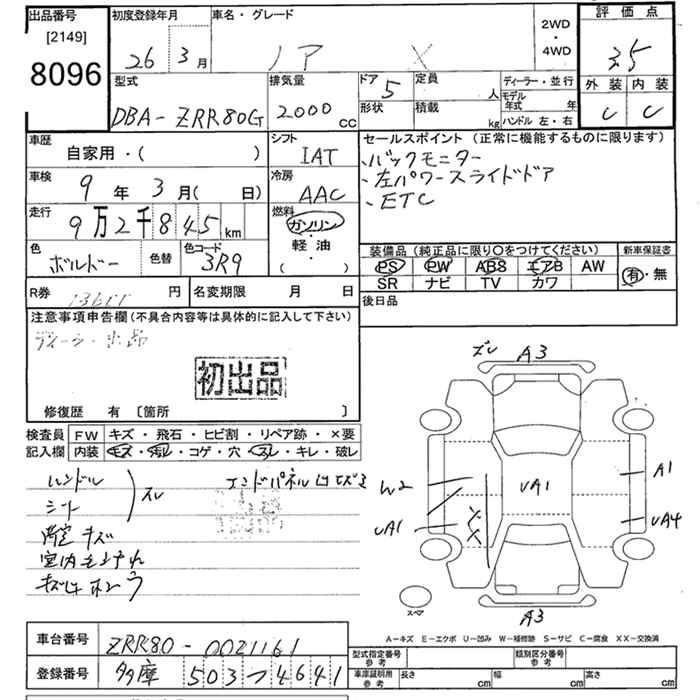 出品番号 初度登録年月 車名・グレード 2WD ・ 4WD 評価点
[2149] 26 3月 ノア X 3.5
8096
外装 内装
C C
型式 排気量 ドア 定員 ディーラー・並行
DBA-ZRR80G 2000 CC 5 人 モデル年式 年
形状 積載 kg ハンドル 左・右
車歴 シフト セールスポイント (正常に機能するものに限ります)
自家用・( ) IAT ・バックモニター
車検 冷房 ・左パワースライドドア
9年3月( 日) AAC ・ETC
走行 燃料
9万2千845km ガソリン・軽油・( )
色 色替 色コード 装備品 (純正品に限り○をつけてください) 新車保証書
ボルドー 3R9 PS PW ABS エアB AW 有・無
SR ナビ TV カワ
R券 円 名変期限 月 日 後日品
注意事項申告欄(不具合内容等は具体的に記入して下さい)
初出品
修復歴 有 [箇所 ]
検査員記入欄 FW キズ・飛石・ヒビ割・リペア跡・×要
内装 キズ・汚れ・コゲ・穴・スレ・キレ・破レ
ハンドル
シート スレ エンドパネル
キズ
室内
ズレ A3
W2 UA1 A1
UA1 UA4
スペア A3
A-キズ E-エクボ U-凹み W-補修跡 S-サビ C-腐食 XX-交換済
車台番号 ZRR80-0021161
登録番号 多摩 503 つ 4641
型式指定番号 参考 類別区分番号 参考
車庫証明用 参考 長さ cm 幅 cm 高さ cm